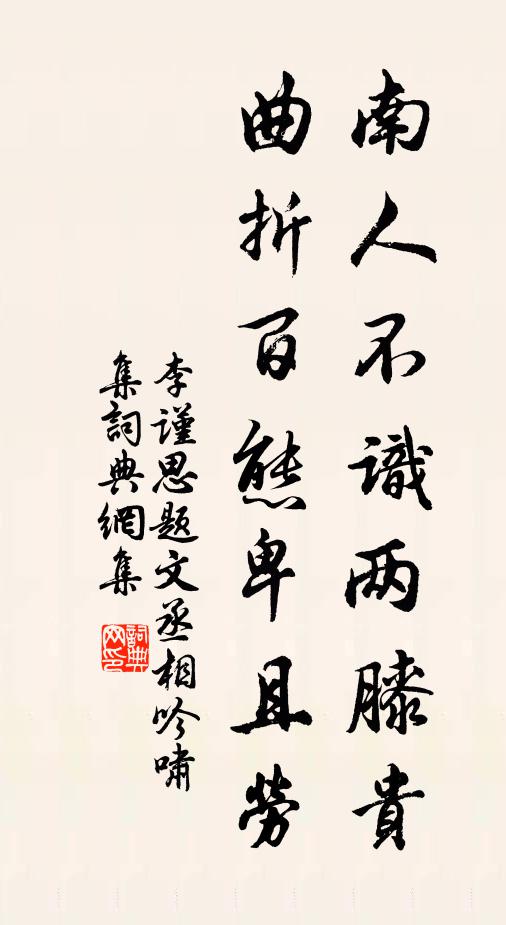 南人不識两膝貴
曲折百態卑且勞
李謹思題文丞相吟嘯
集詞典網集
詞典
网印